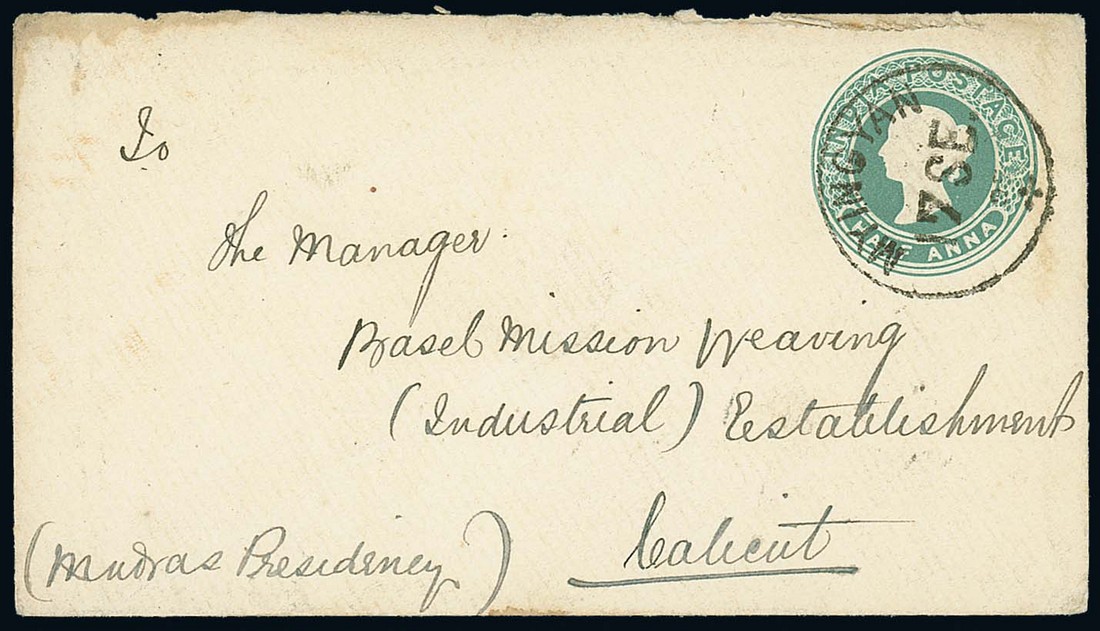 INDIA POSTAGE
HALF ANNA
MYINGYAN
SE 4
To
The Manager.
Basel Mission Weaving
(Industrial) Establishment
Calicut
(Madras Presidency)